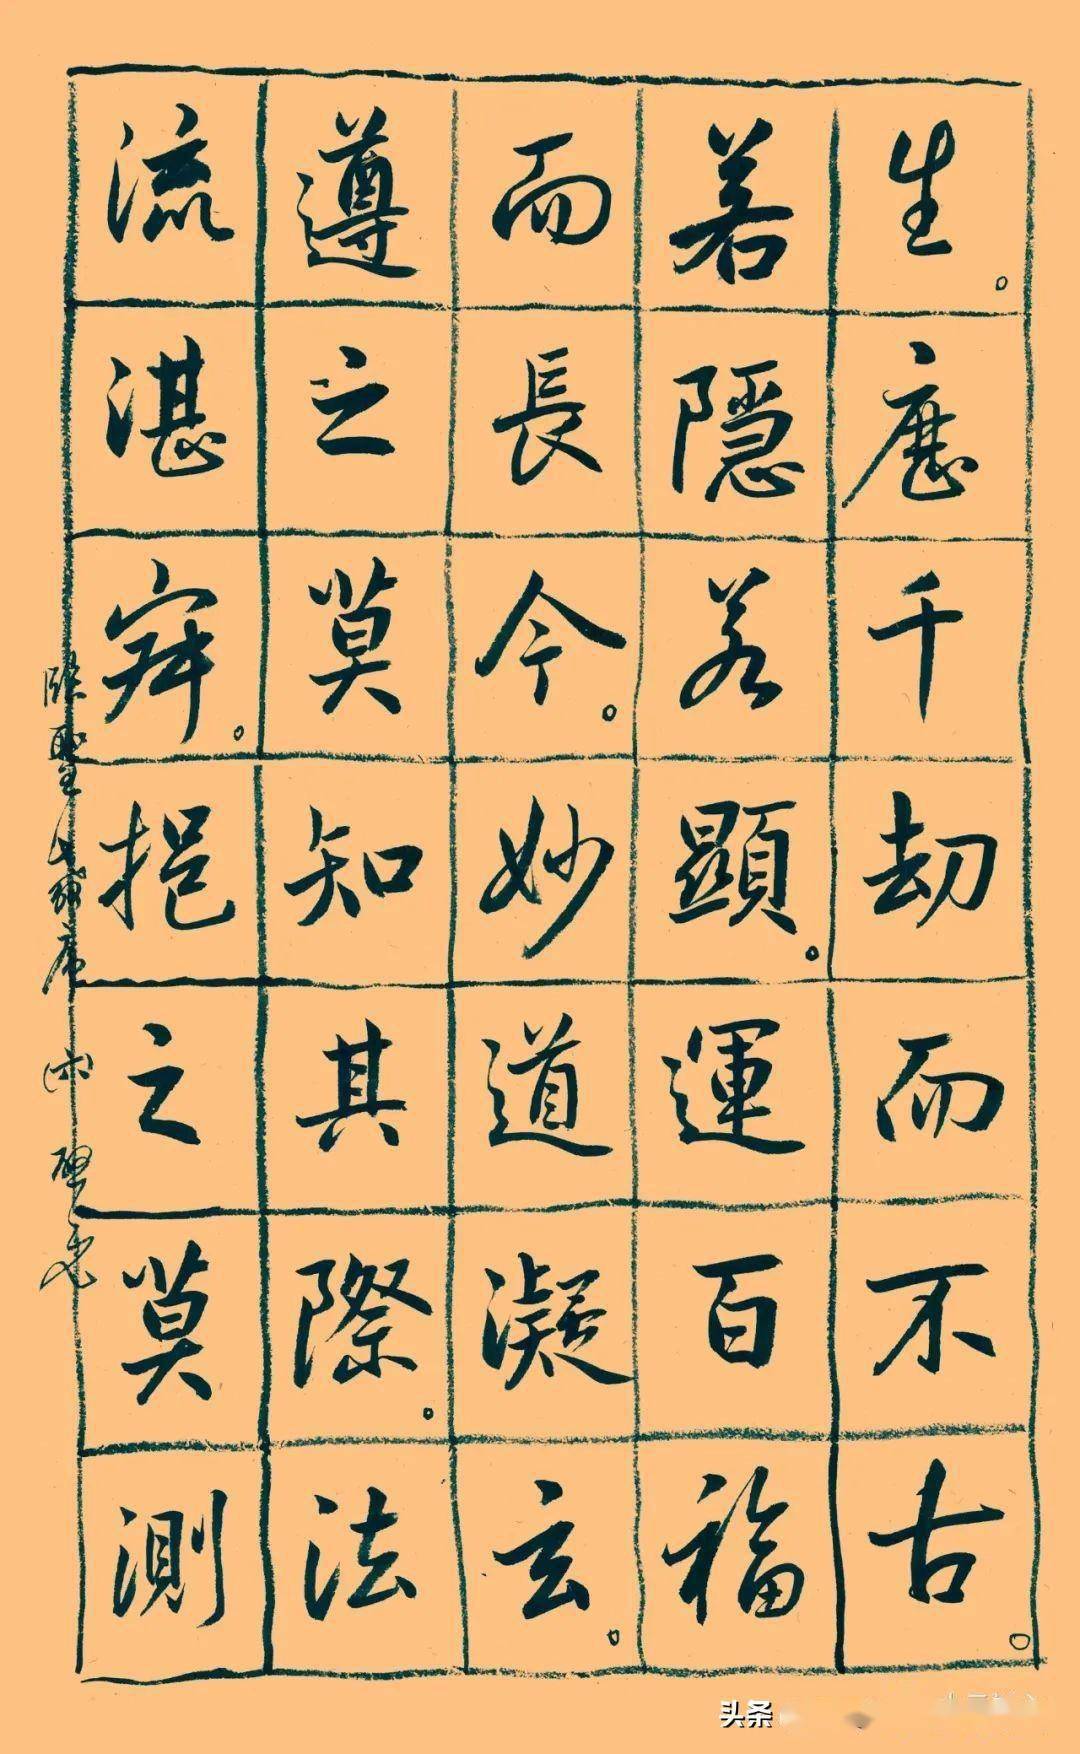 生。歷千劫而不古。
若隱若顯。運百福
而長今。妙道凝玄。
遵之莫知其際。法
流湛寂。挹之莫測
臨聖教序
头条